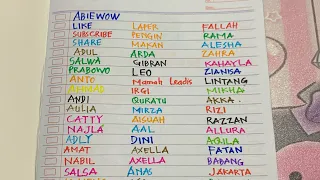 ABIEWOW
LIKE LAPER FALLAH
SUBSCRIBE PENGIN RAMA
SHARE MAKAN ALESHA
APUL ARDA ZAHRA
SALWA GIBRAN KAHAYLA
PRABOWO LEO ZIANISA
ANTO Mamah Leadis LINTANG
AHMAD IRGI MIKHA
ANDI QURATU AKKA
AULIA MIRZA RIZI
CATTY AISUAH RAZZAN
NAJLA AAL ALLURA
ADLY DINI AQILA
AMAT AXELLA FATAN
NABIL AXELLA BABANG
SALSA ANAS JAKARTA